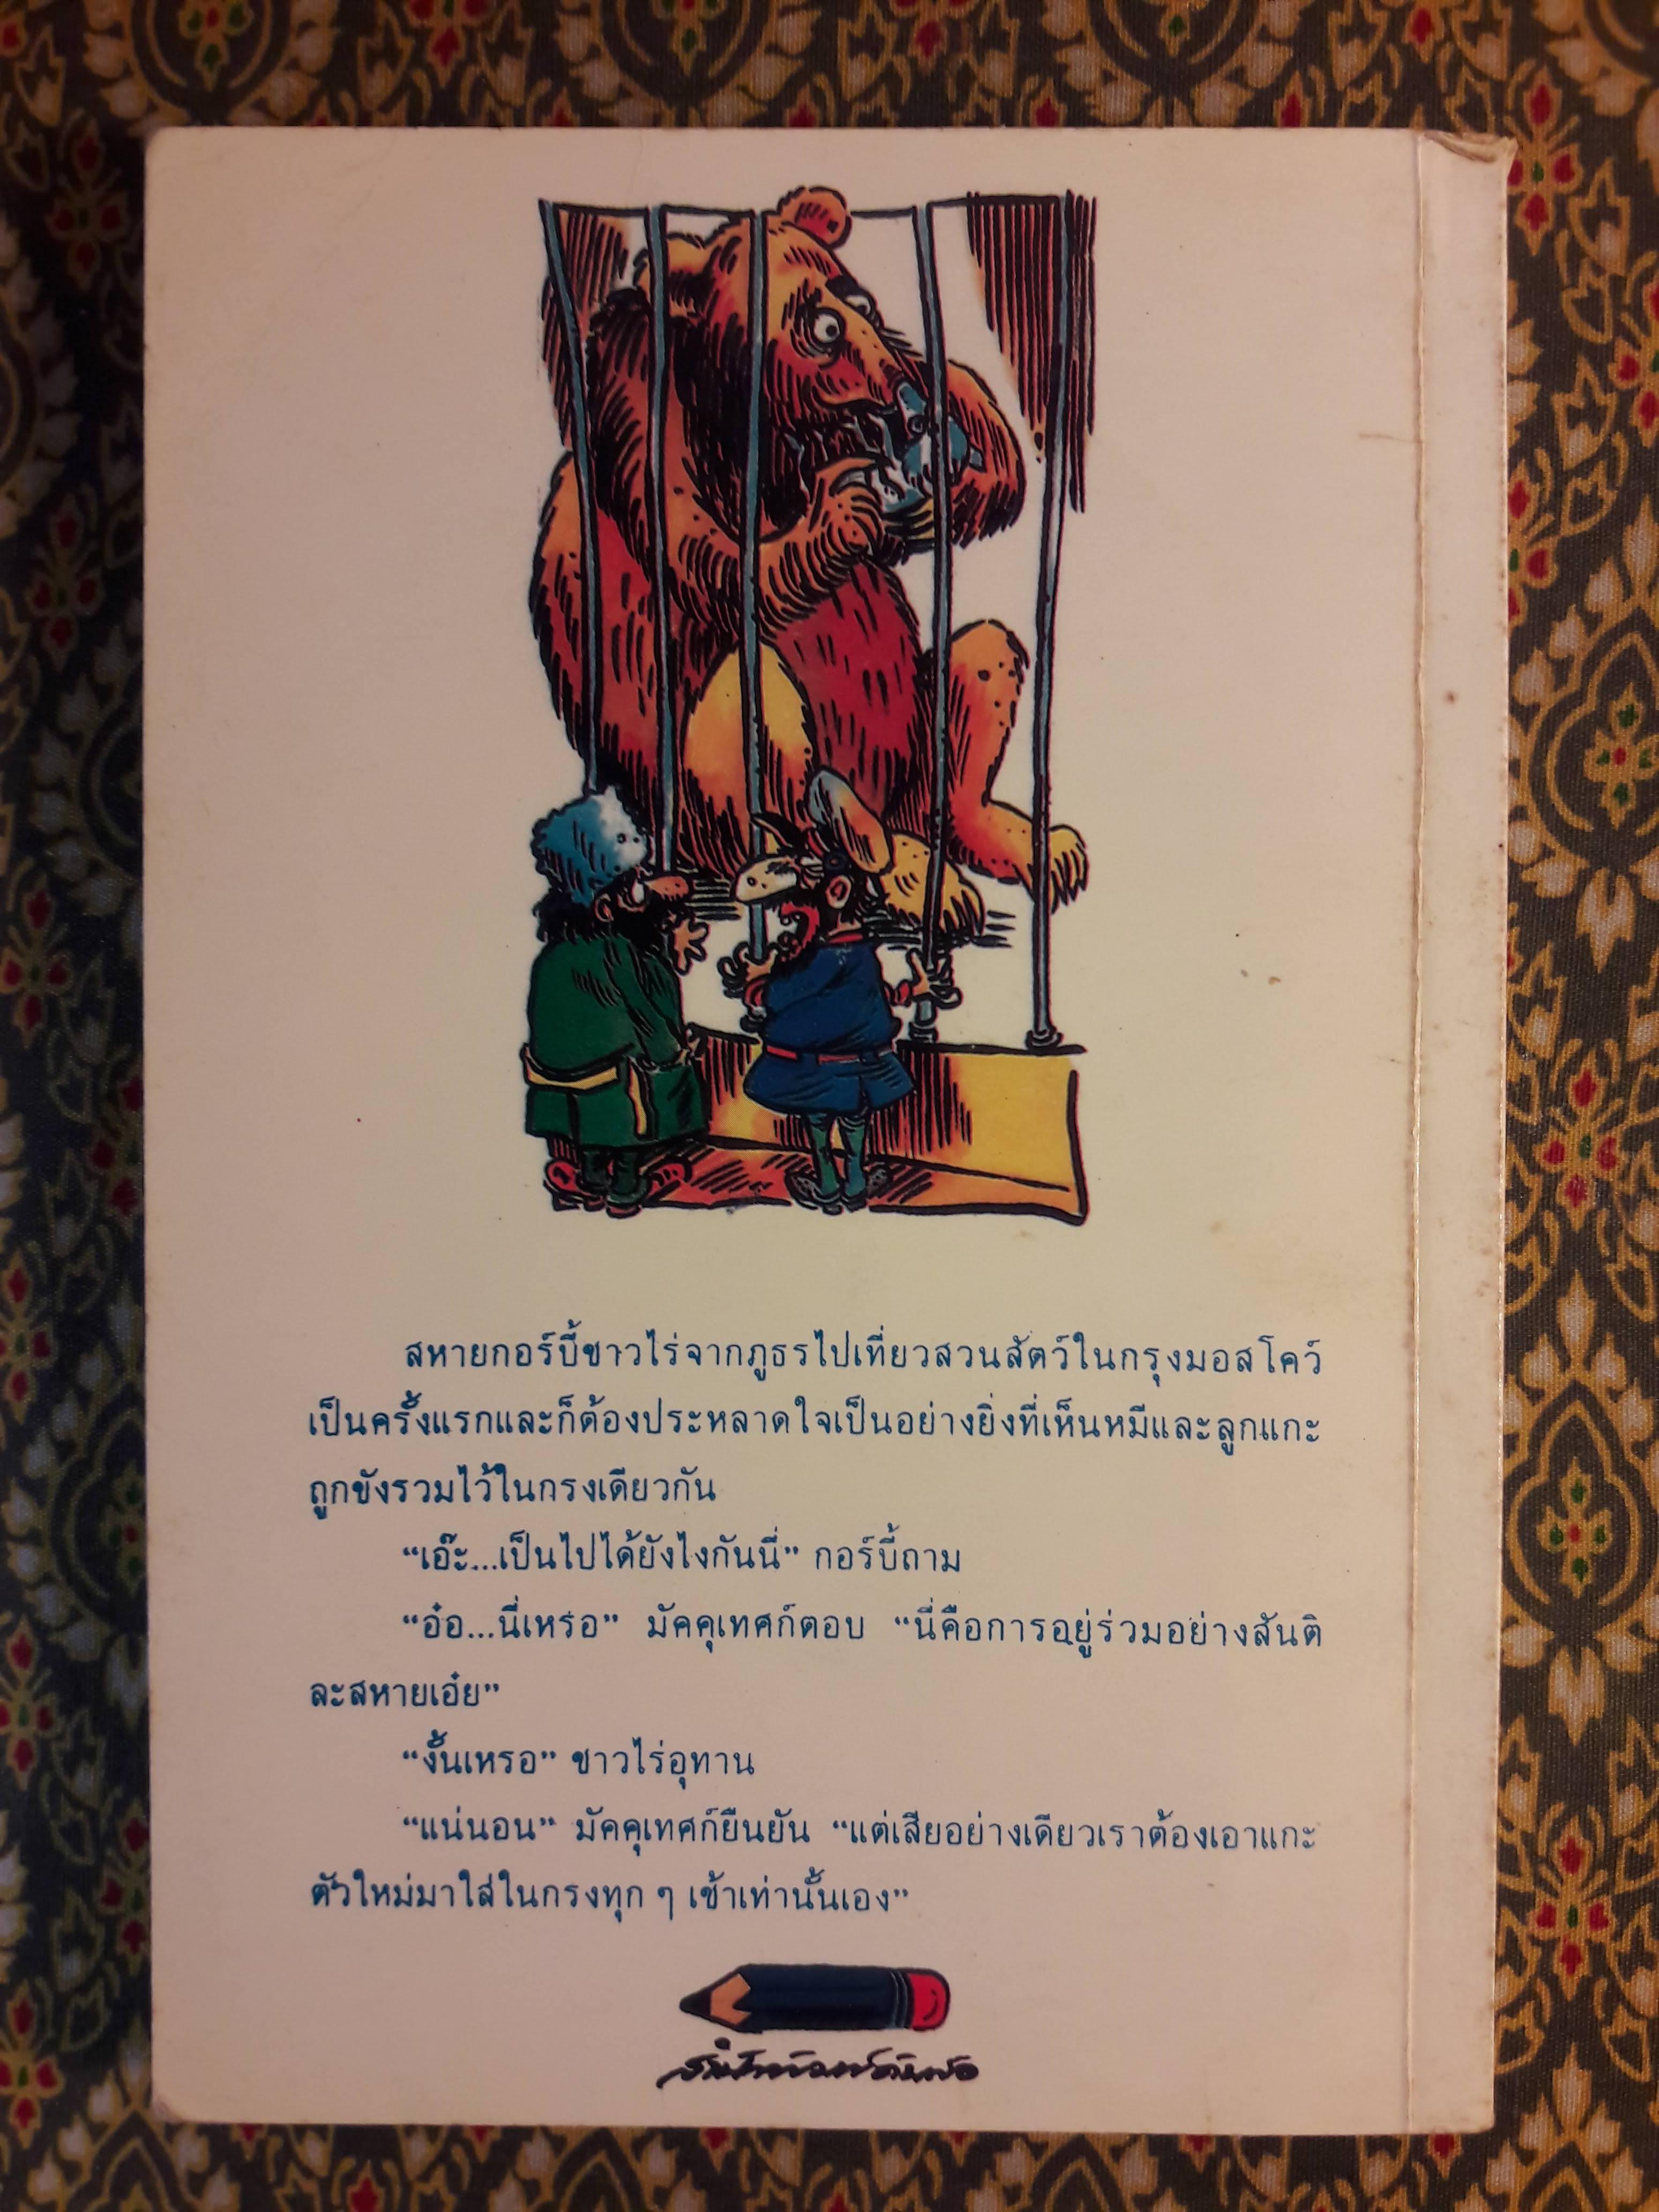 สหายกอร์บี้ชาวไร่จากภูธรไปเที่ยวสวนสัตว์ในกรุงมอสโคว์
เป็นครั้งแรกและก็ต้องประหลาดใจเป็นอย่างยิ่งที่เห็นหมีและลูกแกะ
ถูกขังรวมไว้ในกรงเดียวกัน
“เอ๊ะ...เป็นไปได้ยังไงกันนี่” กอร์บี้ถาม
“อ๋อ...นี่เหรอ” มัคคุเทศก์ตอบ “นี่คือการอยู่ร่วมอย่างสันติ
ละสหายเอ๋ย”
“งั้นเหรอ” ชาวไร่อุทาน
“แน่นอน” มัคคุเทศก์ยืนยัน “แต่เสียอย่างเดียวเราต้องเอาแกะ
ตัวใหม่มาใส่ในกรงทุก ๆ เช้าเท่านั้นเอง”